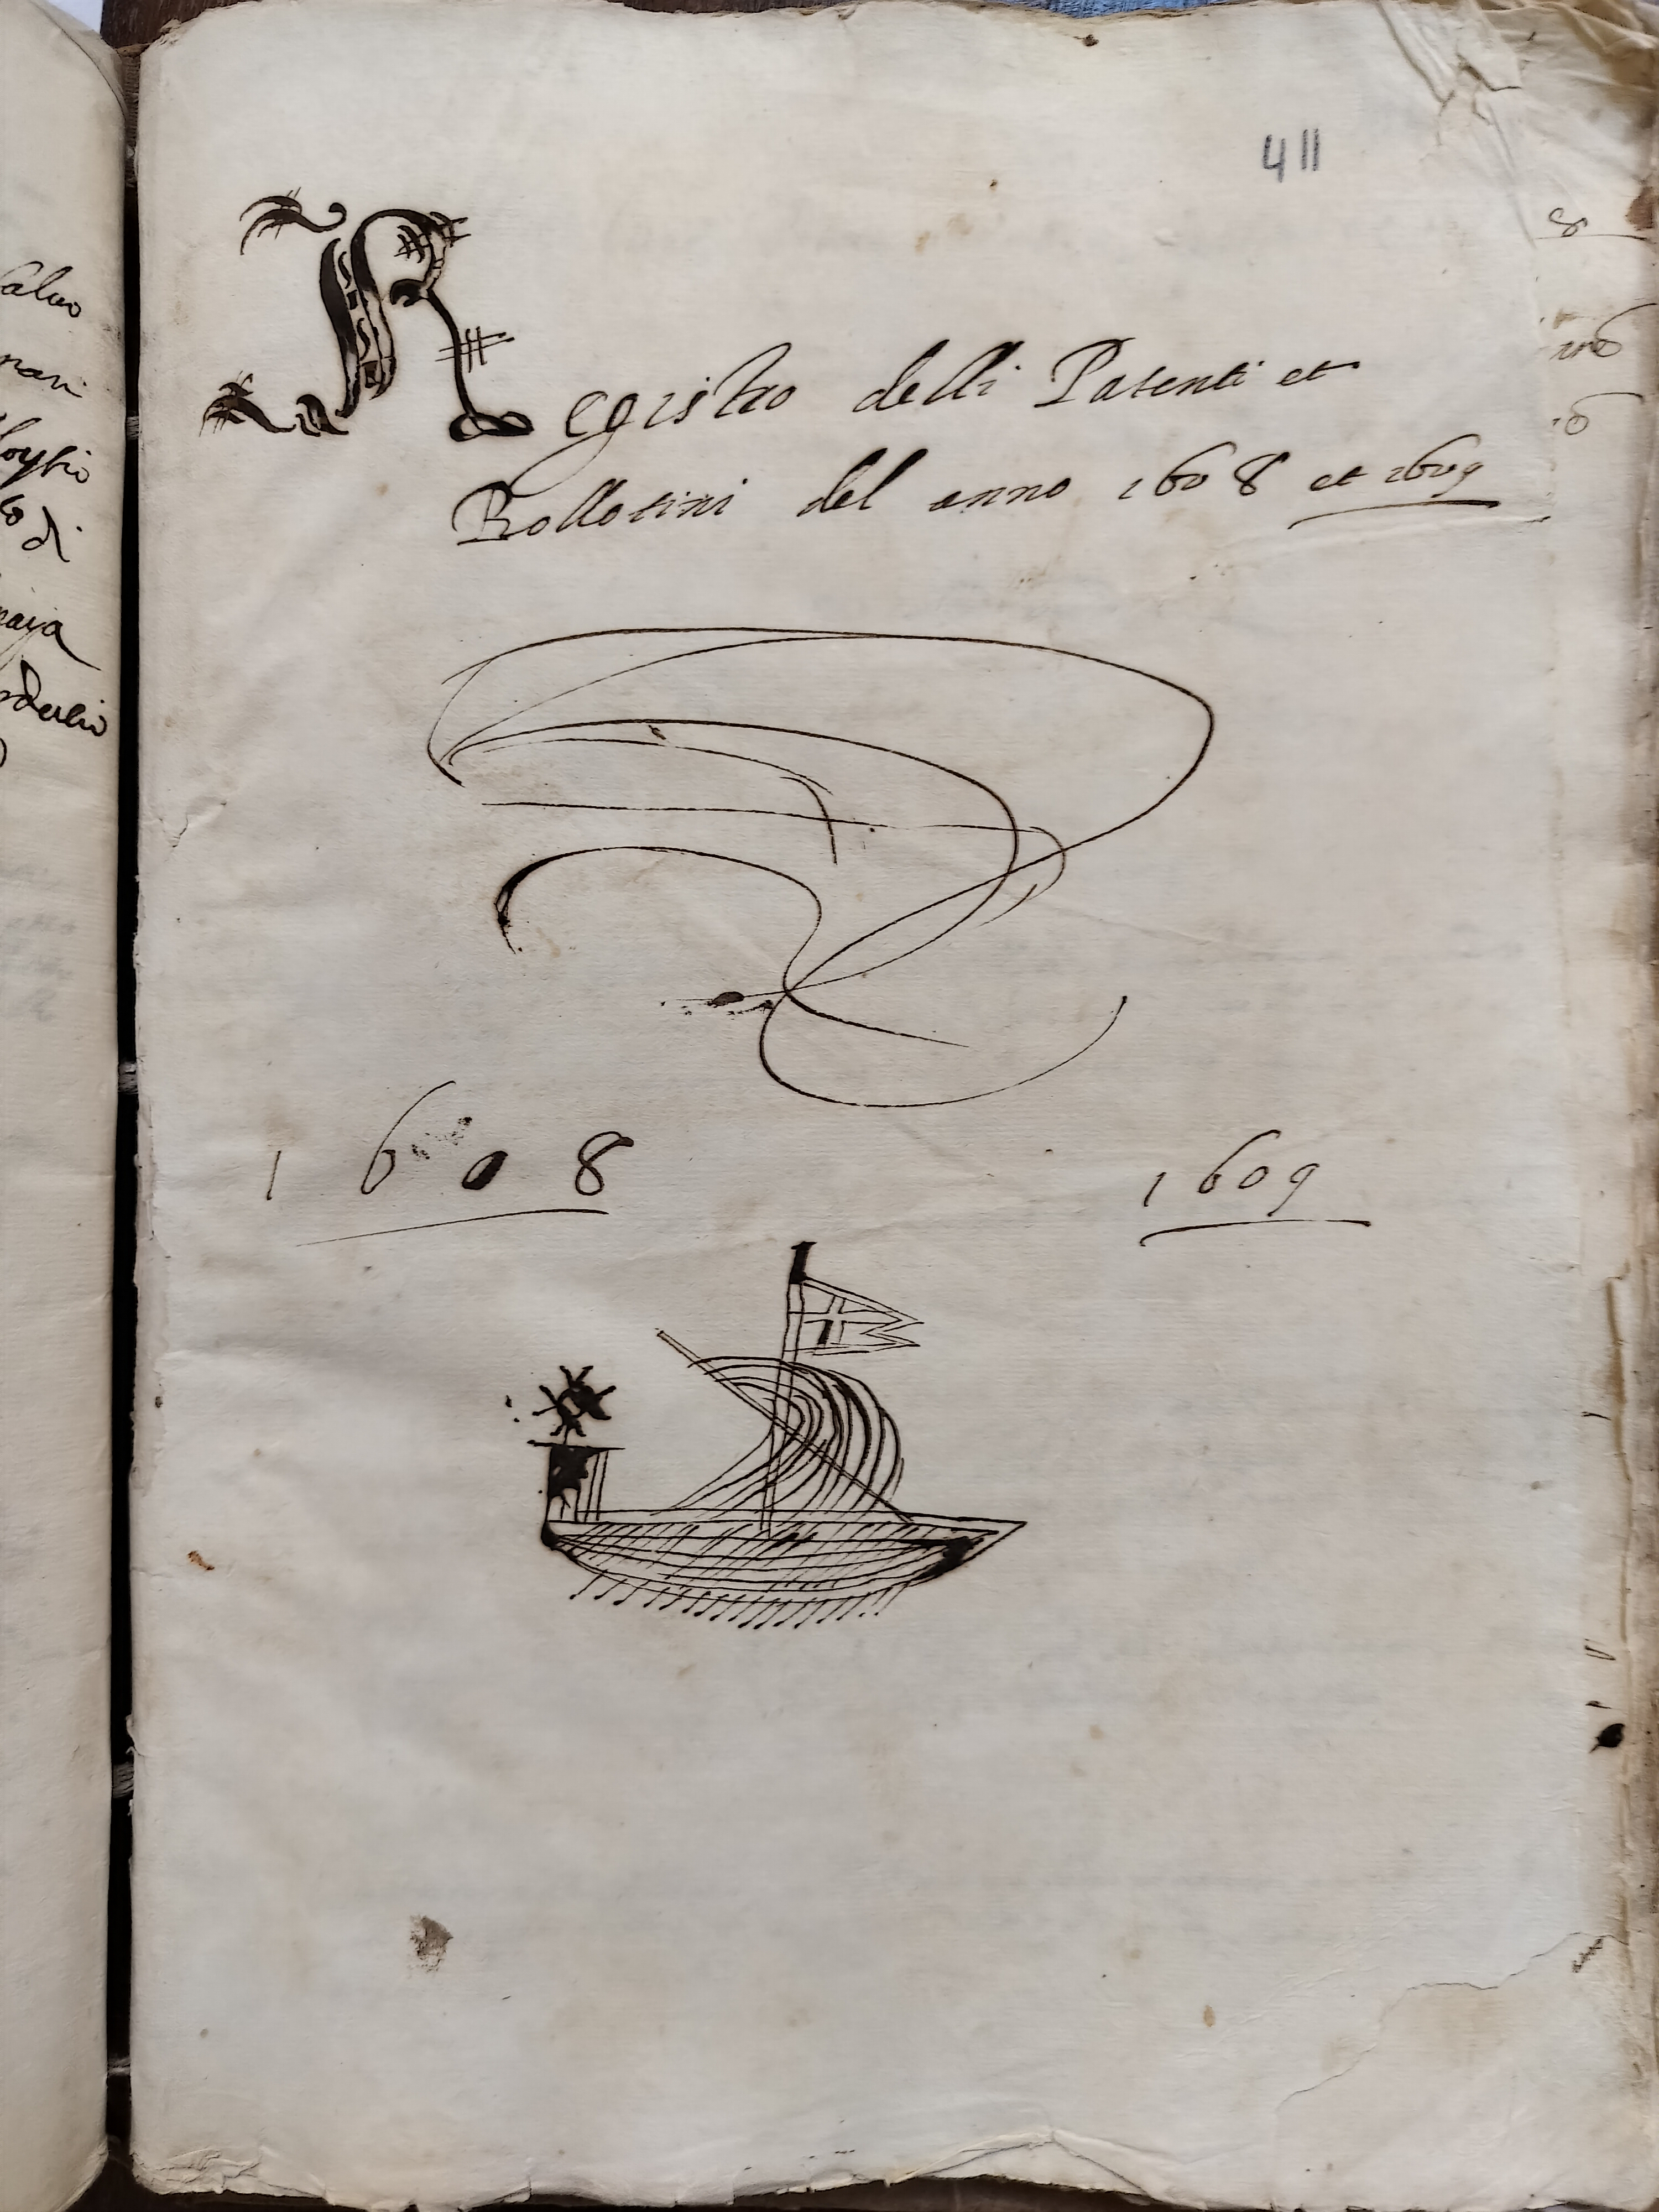 411
Registro delli Patenti et
Bollotini del anno 1608 et 1609
1608 1609